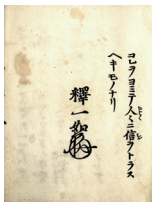 コレヲヨミテ人々ニ信ヲトラス
ヘキモノナリ
釋一如